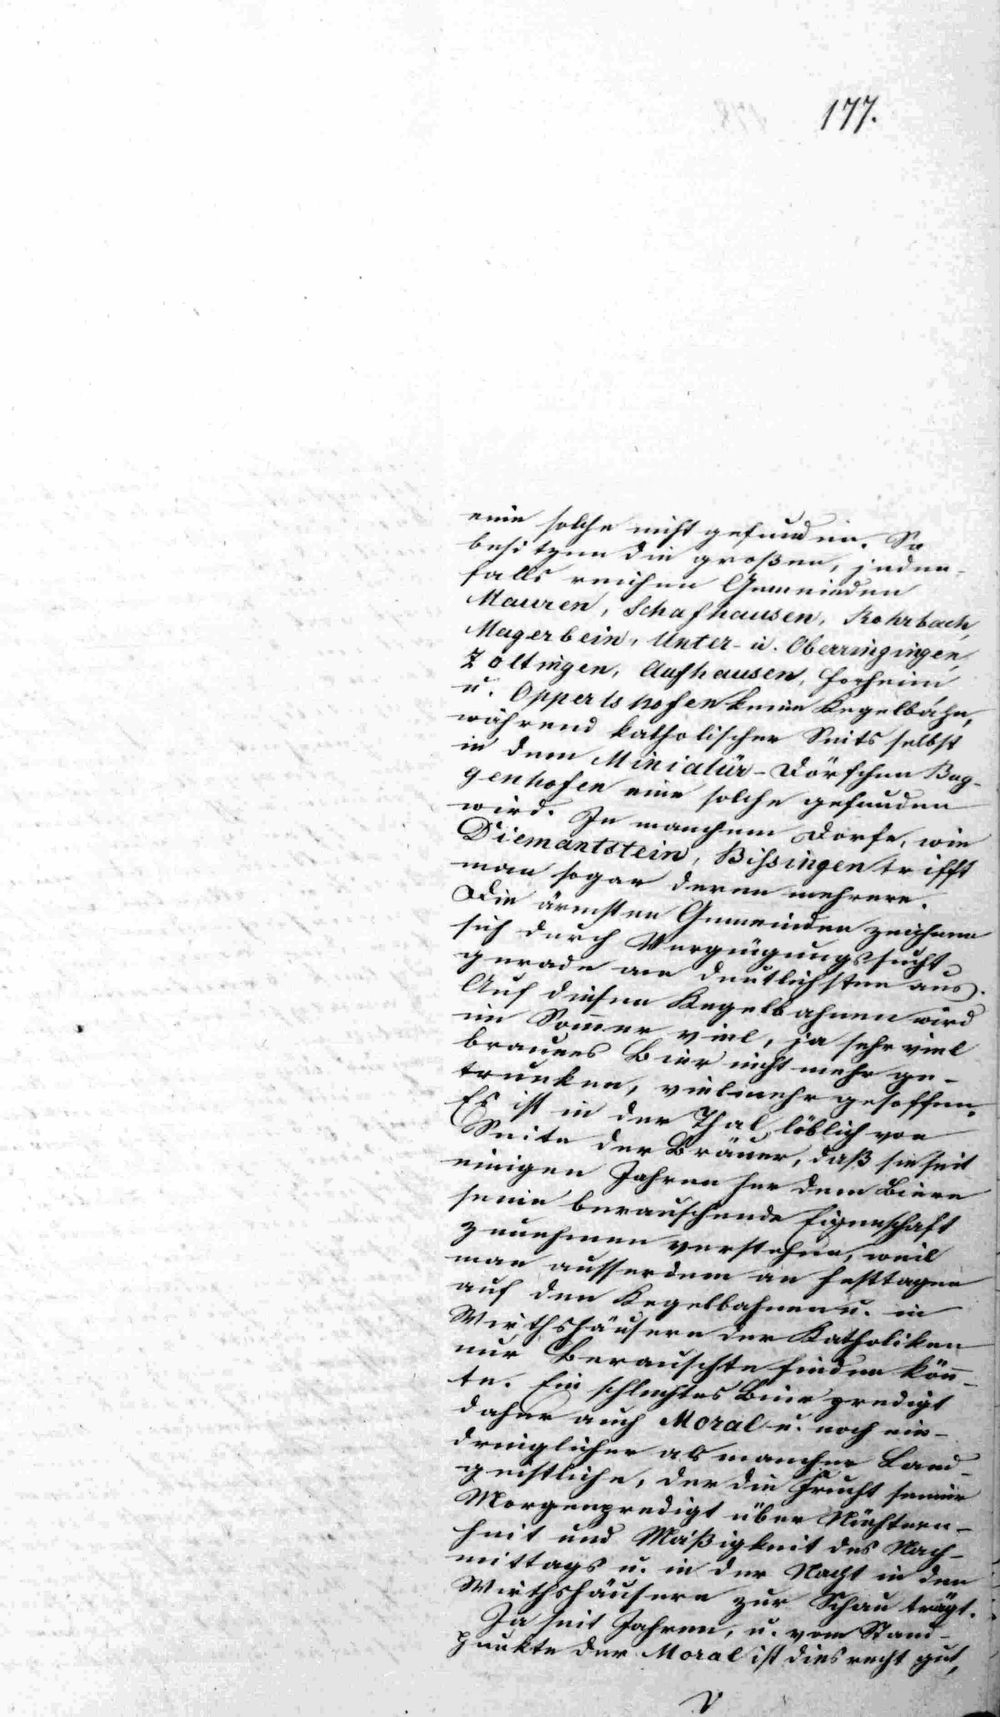 177.
eine solche nicht gefunden. So
besitzen die großen, jeden-
falls reichen Gemeinden
Mauren, Schafhausen, Rohrbach,
Magerbein, Unter- u. Oberringingen,
Zoltingen, Aufhausen, Forheim
u. Oppertshofen keine Kegelbahn,
während katholischer Seits selbst
in dem Miniatür-Dörfchen Bug-
genhofen eine solche gefunden
wird. In manchem Dorfe, wie
Diemantstein, Bissingen trifft
man sogar deren mehrere.
Die ärmsten Gemeinden zeichnen
sich durch Vergnügungssucht
gerade am deutlichsten aus.
Auf diesen Kegelbahnen wird
im Somer viel, ja sehr viel
braunes Bier nicht mehr ge-
trunken, vielmehr gesoffen.
Es ist in der That löblich von
Seite der Bräuer, daß sie seit
einigen Jahren her dem Biere
seine berauschende Eigenschaft
zu nehmen verstehen, weil
man ausserdem an Festtagen
auf den Kegelbahnen u. in
Wirthshäusern der Katholiken
nur Berauschte finden kön-
te. Ein schlechtes Bier predigt
daher auch Moral u. noch ein-
dringlicher als mancher Land-
geistliche, der die Frucht seiner
Morgenpredigt über Nüchtern-
heit und Mäßigkeit des Nach-
mittags u. in der Nacht in den
Wirthshäusern zur Schau trägt.
Ja seit Jahren, u. vom Stand-
punkte der Moral ist dies recht gut,